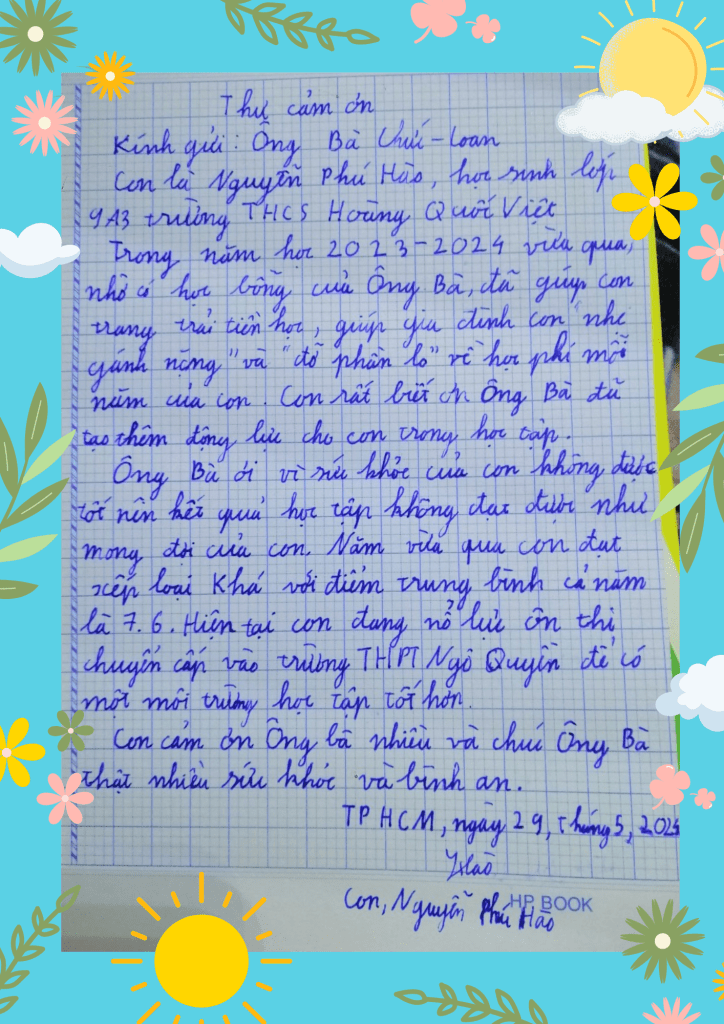 Thư cảm ơn
Kính gửi: Ông Bà Chúc-Loan
Con là Nguyễn Phú Hào, học sinh lớp
9A3 trường THCS Hoàng Quốc Việt
Trong năm học 2023-2024 vừa qua,
nhờ có học bổng của Ông Bà, đã giúp con
trang trải tiền học, giúp gia đình con "nhẹ
gánh nặng" và "đỡ phần lo" về học phí mỗi
năm của con. Con rất biết ơn Ông Bà đã
tạo thêm động lực cho con trong học tập.
Ông Bà ơi vì sức khỏe của con không được
tốt nên kết quả học tập không đạt được như
mong đợi của con. Năm vừa qua con đạt
xếp loại Khá với điểm trung bình cả năm
là 7.6. Hiện tại con đang nổ lực ôn thi
chuyển cấp vào trường THPT Ngô Quyền để có
một môi trường học tập tốt hơn.
Con cảm ơn Ông bà nhiều và chúc Ông Bà
thật nhiều sức khỏe và bình an.
TP HCM, ngày 29, tháng 5, 2024
Hào
Con, Nguyễn Phú Hào
HP BOOK